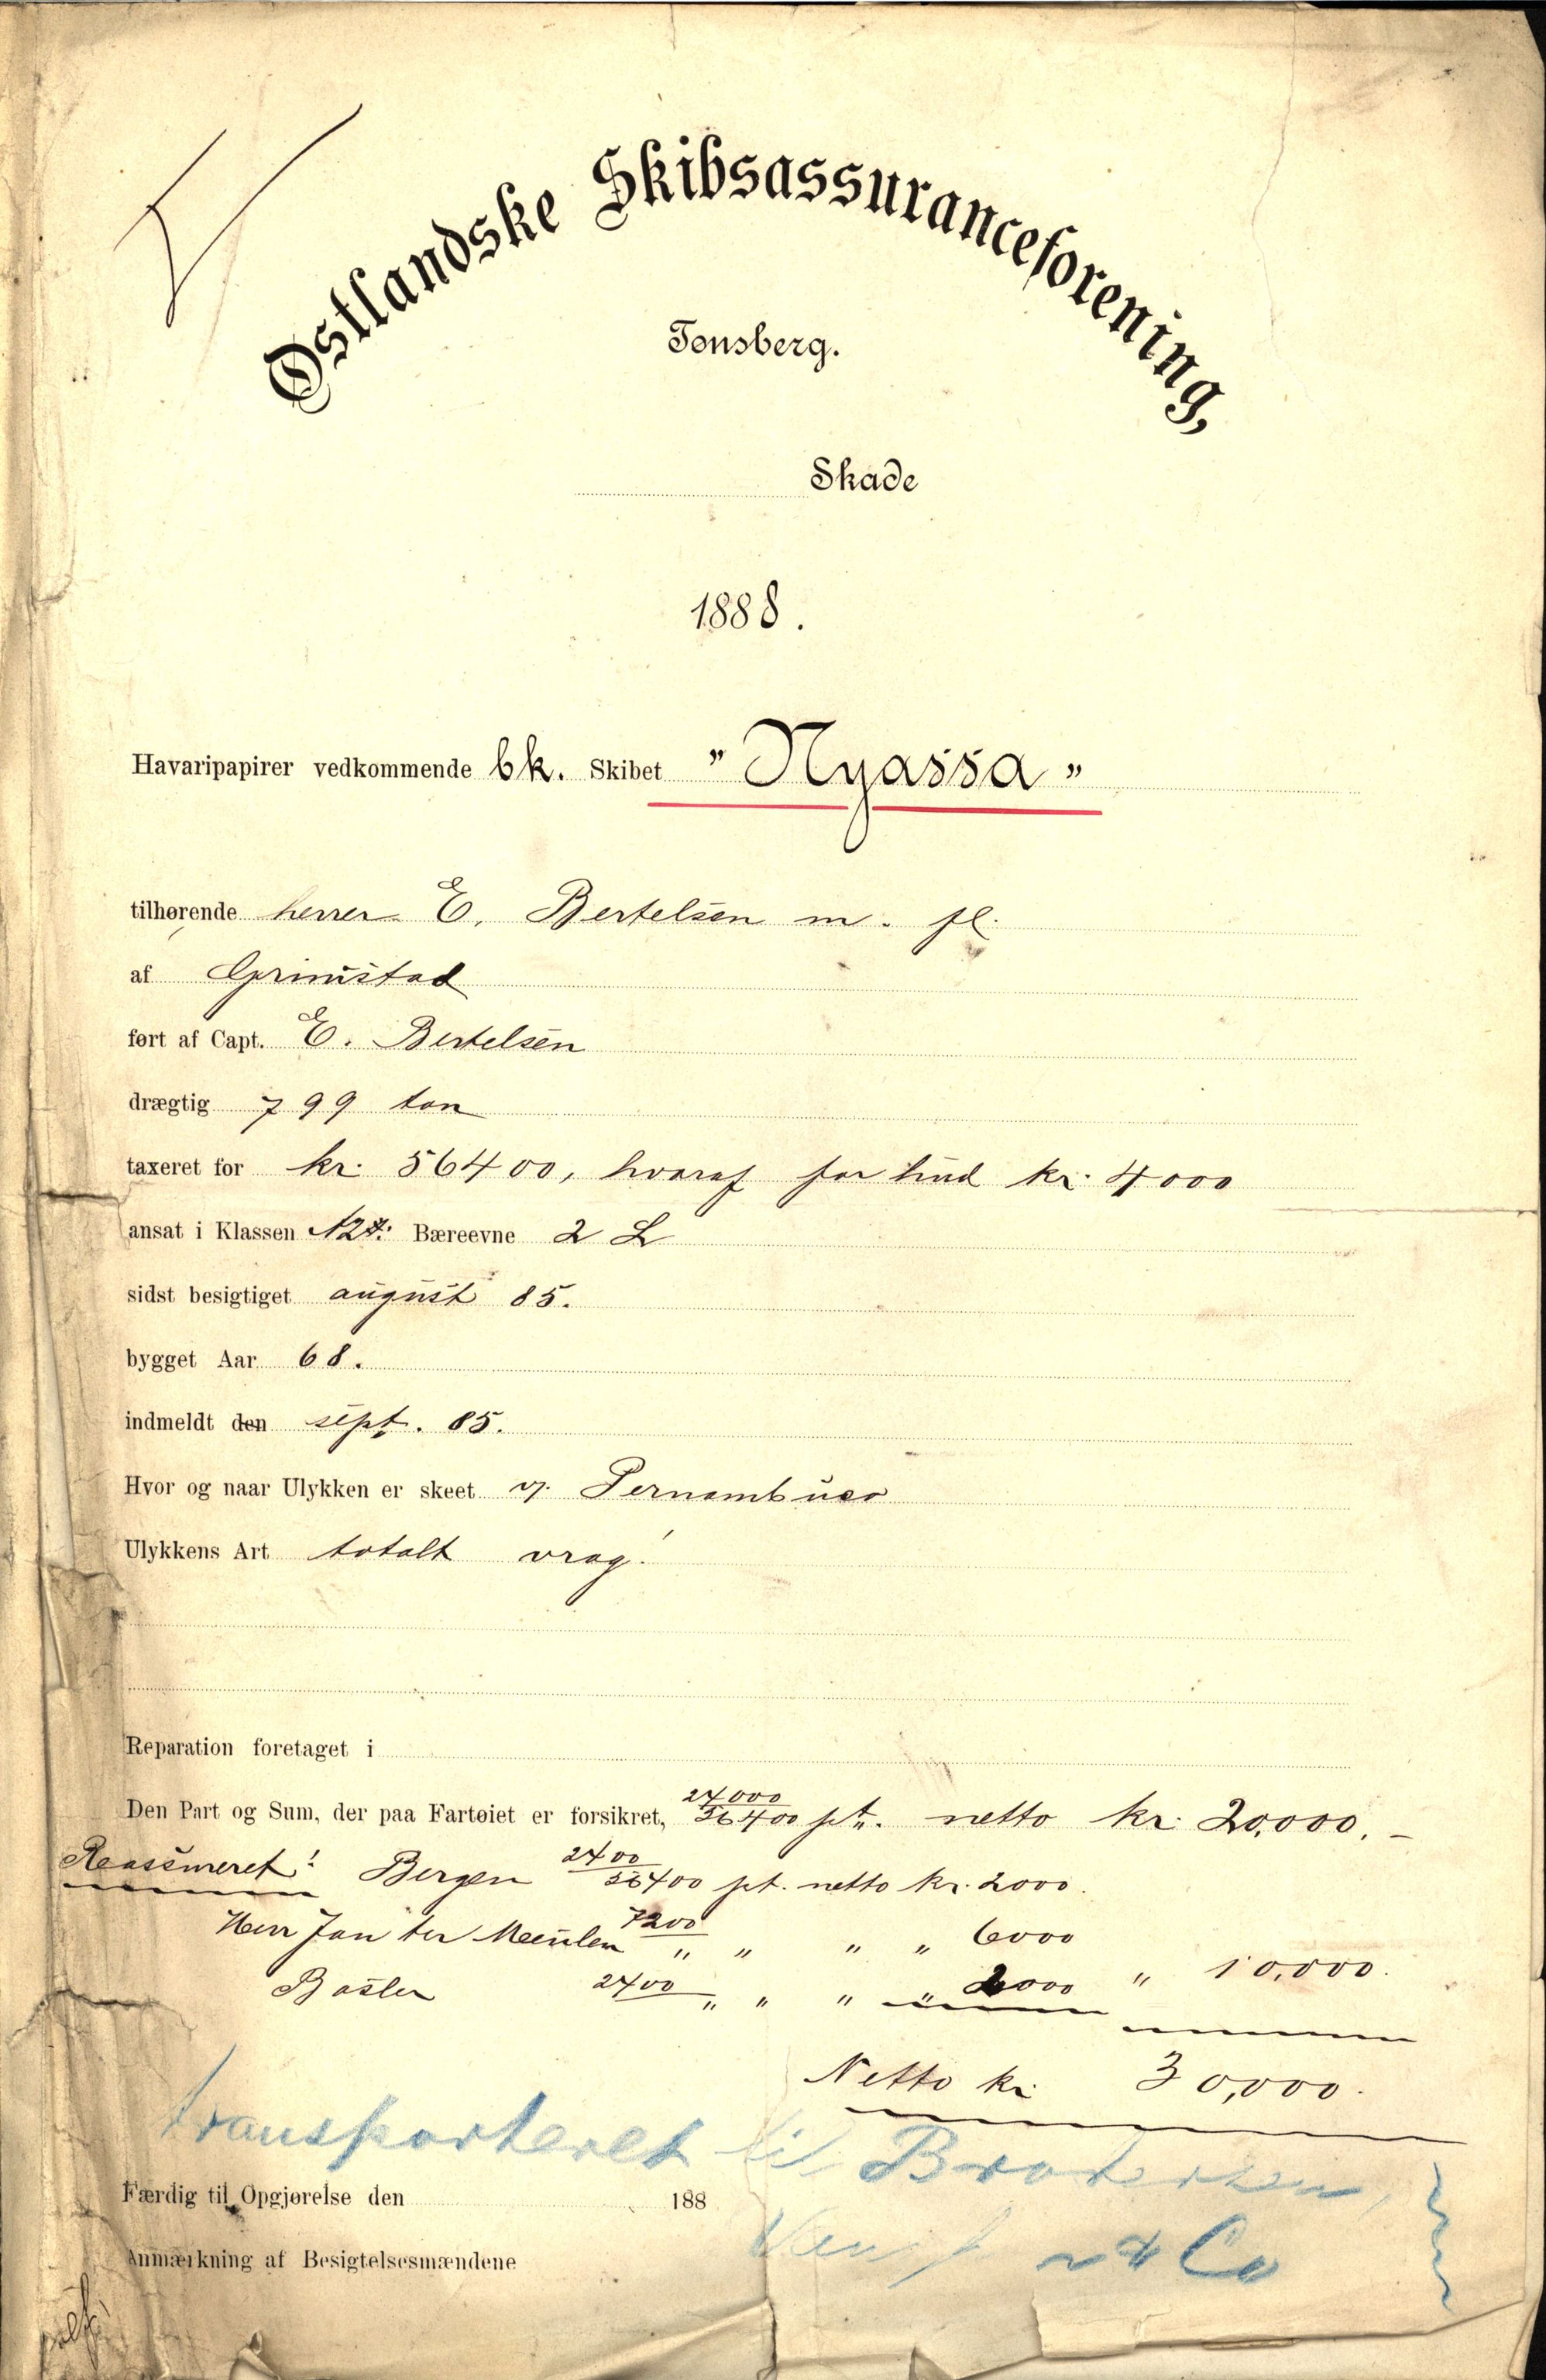 Østlandske Skibsassuranceforening,
Tønsberg.
Skade
1888.
Havaripapirer vedkommende bk. Skibet "Nyassa"
tilhørende herrer E. Bertelsen m. fl.
af Grimstad
ført af Capt. E. Bertelsen
drægtig 799 ton
taxeret for kr. 56400, hvoraf for hud kr. 4000
ansat i Klassen Bæreevne 2 L
sidst besigtiget august 85.
bygget Aar 68.
indmeldt den sept. 85.
Hvor og naar Ulykken er skeet v. Pernambuco
Ulykkens Art totalt vrag!
Reparation foretaget i
Den Part og Sum, der paa Fartøiet er forsikret, 24000/56400 pt. netto kr. 20,000.–
Reassureret: Bergen 2400/56400 pt. netto kr. 2000.
Herr Jan ter Meulen 7200/" " " " 6000
Basler 2400/" " " " 2000 " 10,000.
Netto kr 30,000.
transporteret til
Færdig til Opgjørelse den 188
& Co
Anmærkning af Besigtelsesmændene